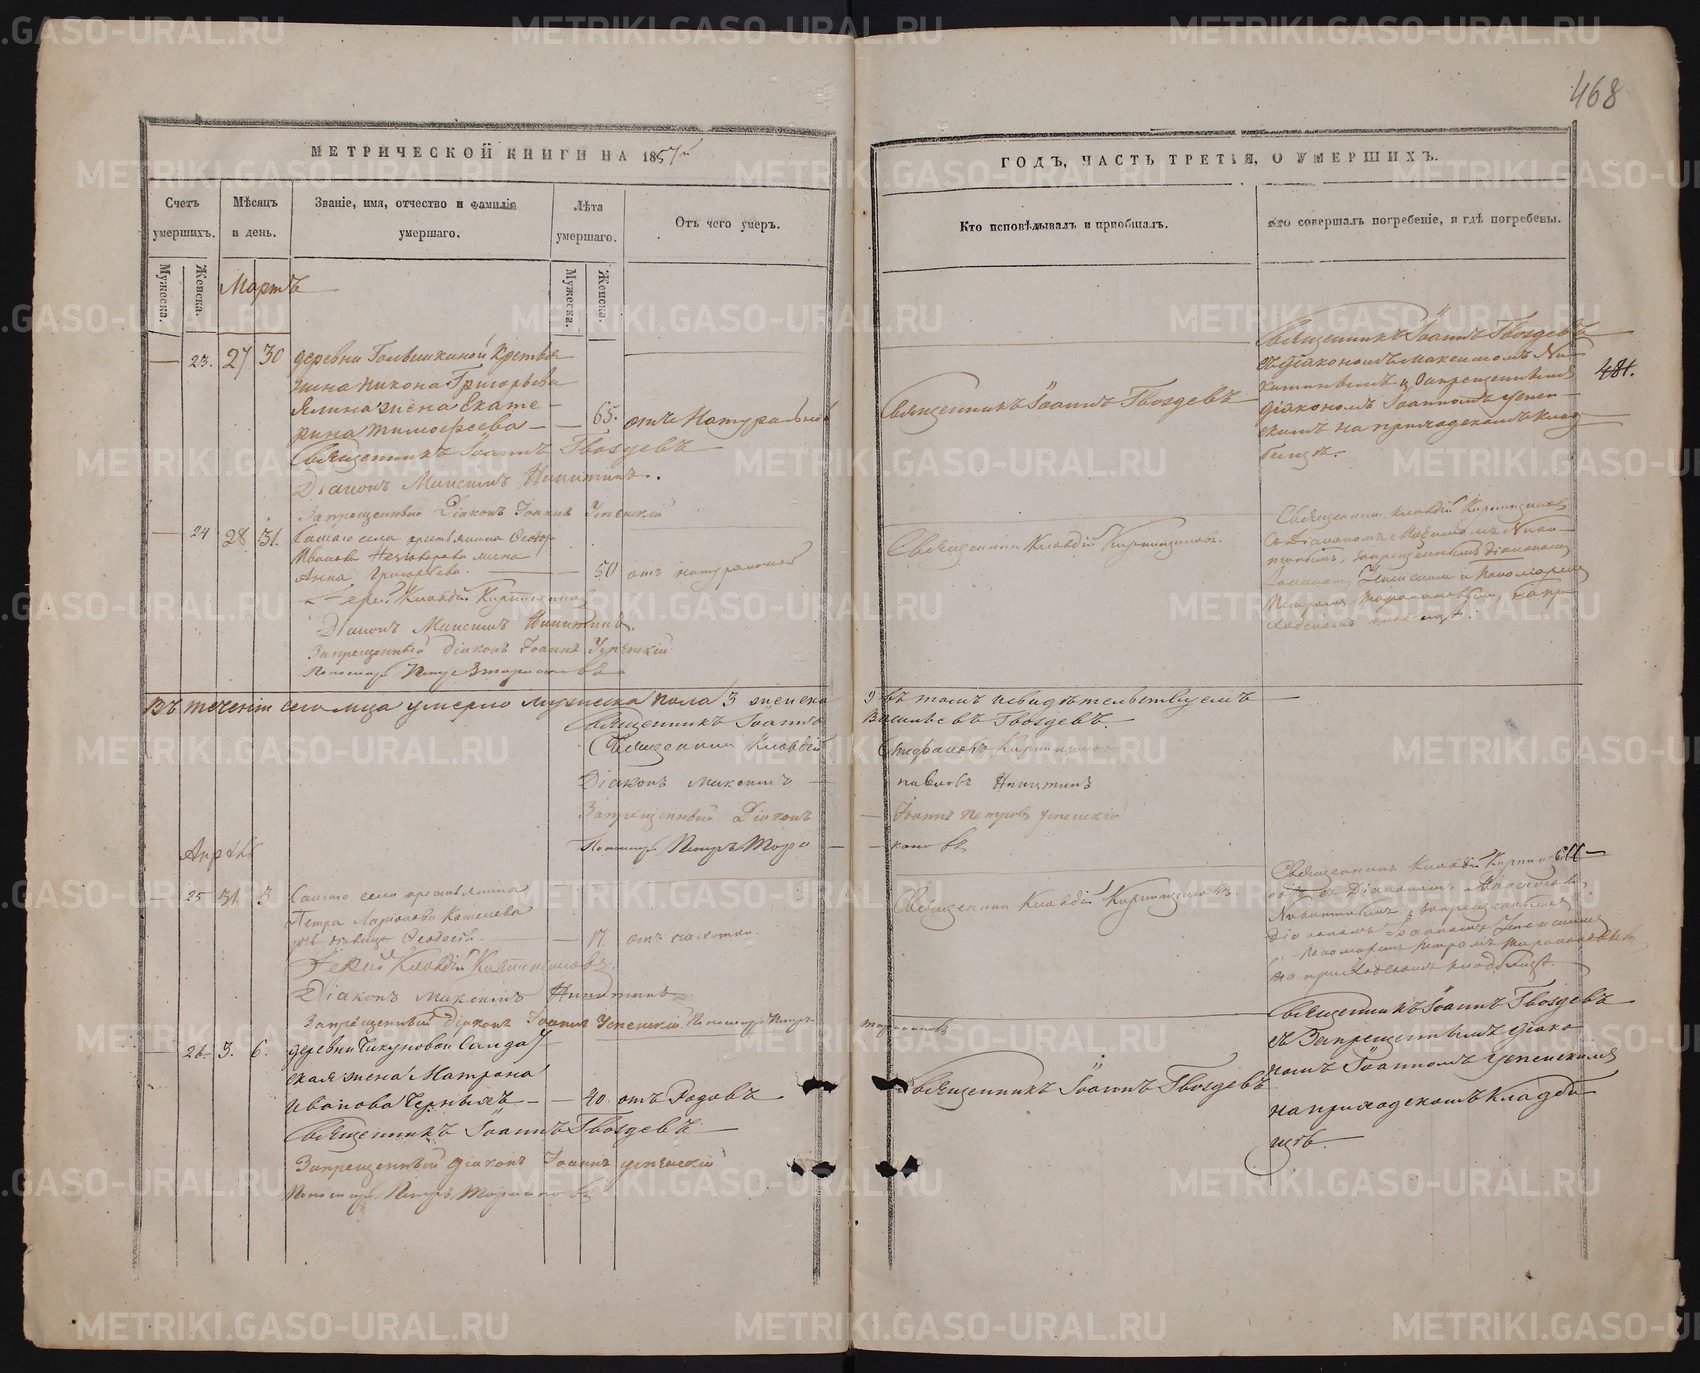 468
МЕТРИЧЕСКОЙ КНИГИ НА 1857й
ГОДЪ, ЧАСТЬ ТРЕТІЯ, О УМЕРШИХЪ.
Счетъ умершихъ.
Мѣсяцъ и день.
Званіе, имя, отчество и фамилія умершаго.
Лѣта умершаго.
Отъ чего умеръ.
Кто исповѣдывалъ и пріобщалъ.
Кто совершалъ погребеніе, и гдѣ погребены.
Мужеска.
Женска.
Мужеска.
Женска.
Мартъ
23. 27 30
деревни крестья
нина Никона Григорьева
жена Екате-
рина Тимофеева — 65. отъ Натуральной
Священникъ Іоаннъ Гвоздевъ
Діаконъ Максимъ Никитинъ.
Запрещенный Діаконъ Іоаннъ Успенскій
Священникъ Іоаннъ Гвоздевъ
Священникъ Іоаннъ Гвоздевъ
съ діакономъ Максимомъ Ни-
китинымъ и запрещеннымъ
діакономъ Іоанномъ Успен-
скимъ на приходскомъ клад
бищѣ.
481.
24 28 31.
Самаго села крестьянина Федора
Иванова жена
Анна Григорьева. — 50 отъ натуральной
Іерей Клавдій
Діаконъ Максимъ Никитинъ.
Запрещенный діаконъ Іоаннъ Успенскій
Пономарь Петръ
Священникъ Клавдій
Священникъ Клавдій
съ Діакономъ Максимомъ Ники-
тинымъ, запрещеннымъ Діакономъ
Іоанномъ Успенскимъ и пономаремъ
Петромъ на при
ходскомъ кладбищѣ.
Въ теченіи сего м-ца умерло мужеска пола 3 женска 9 въ томъ и свидѣтельствуемъ
Священникъ Іоаннъ Васильевъ Гвоздевъ.
Священникъ Клавдій Стефановъ
Діаконъ Максимъ — Павловъ Никитинъ
Запрещенный Діаконъ — Іоаннъ Петровъ Успенскій
Пономарь Петръ
Апрѣль
25 31. 3
Самаго села крестьянина
Петра Кошелева
дочь дѣвица Феодосія. — 17. отъ чахотки.
Іерей Клавдій
Діаконъ Максимъ Никитинъ
Запрещенный Діаконъ Іоаннъ Успенскій Пономарь Петръ
Священникъ Клавдій
Священникъ Клавдій
съ Діакономъ Максимомъ
Никитинымъ, запрещеннымъ
Діакономъ Іоанномъ Успенскимъ
и пономаремъ Петромъ
на приходскомъ кладбищѣ.
26. 3. 6.
деревни Чикуновой Солдат
ская жена Матрона
Иванова Черныхъ — 40. отъ Родовъ
Священникъ Іоаннъ Гвоздевъ
Запрещенный діаконъ Іоаннъ Успенскій
Пономарь Петръ
Священникъ Іоаннъ Гвоздевъ
Священникъ Іоаннъ Гвоздевъ
съ Запрещеннымъ діако
номъ Іоанномъ Успенскимъ
на приходскомъ кладби
щѣ.
METRIKI.GASO-URAL.RU